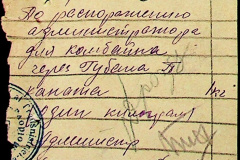 По распоряжению
администратора
для комбайна
через Губина П
каната 1кг
один килограмм
Администр